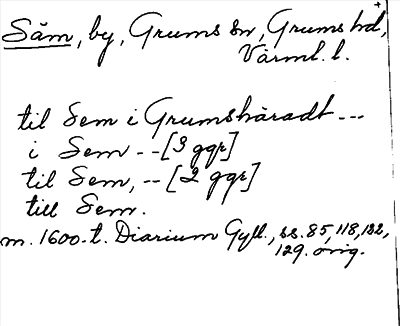 Säm, by, Grums sn, Grums hd,
Värml. l.
till Sem i Grumsháradt ---
i Sem -- [3 ggr]
till Sem, -- [2 ggr]
till Sem.
m. 1600-t. Diarium Gyll., ss. 85, 118, 132,
129. orig.